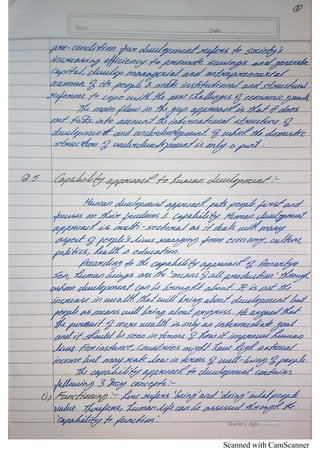 Date
pre-condition for development refers to society's
increasing efficiency to promote savings and generate
capital, develop managerial and entrepreneurial
acumen of its people & make institutional and structural
reforms to cope with the new challenges of economic growth.
The main flaw in the gap approach is that it does
not take into account the international structure of
development and underdevelopment of which the domestic
structure of underdevelopment is only a part.
Q.5. Capability approach to human development :-
Human development approach puts people first and
focuses on their freedoms & capability. Human development
approach is multi-sectoral as it deals with many
aspect of people's lives ranging from economy, culture,
politics, health & education.
According to the capability approach of Amartya
Sen, human beings are the 'means of all production' through
whom development can be brought about. It is not the
increase in wealth that will bring about development but
people as means will bring about progress. He argued that
the pursuit of more wealth is only an intermediate goal
and it should be seen in terms of how it improves human
lives. For instance, countries might have high national
income but may rank low in terms of well-being of people.
The capability approach to development contains
following 3 key concepts :-
(i) Functioning :- Here refers 'being' and 'doing' what people
value. Therefore, human life can be assessed through the
'capability to function'.
Teacher's Sign
Scanned with CamScanner